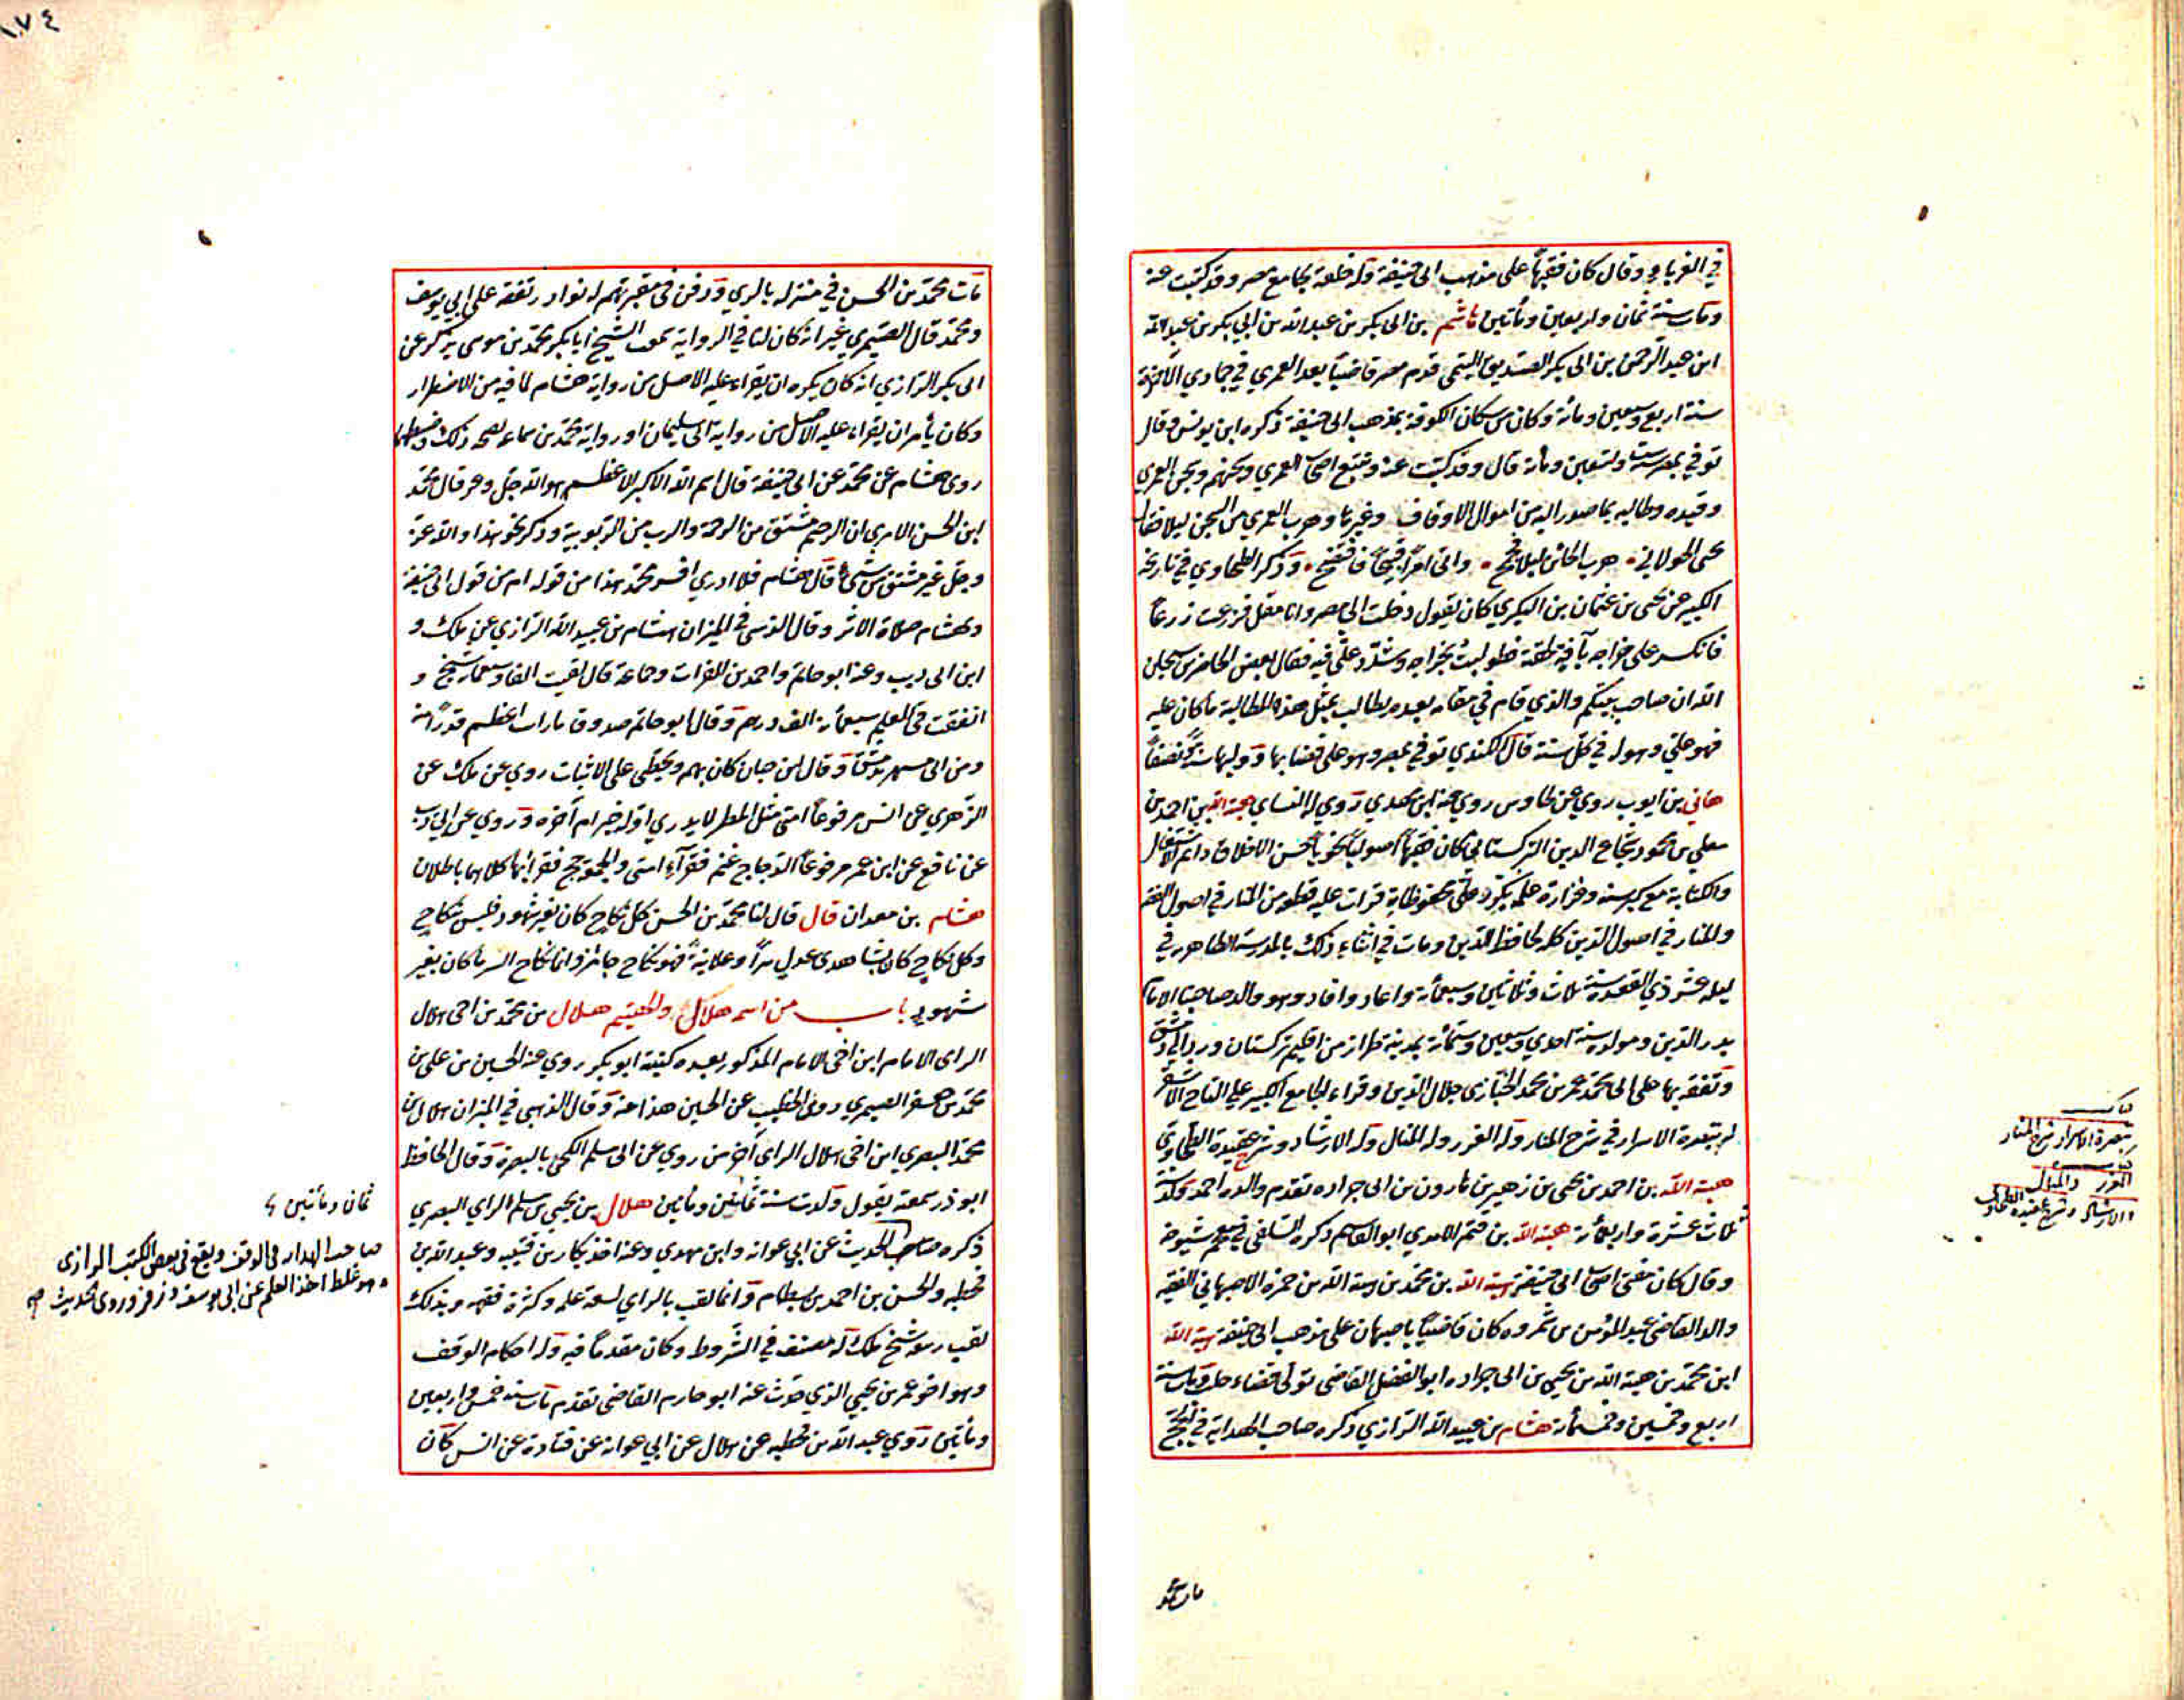 في الغرباء وقال كان فقيها على مذهب ابى حنيفة وله حلقة بجامع مصر وقد كتبت عنه
ومات سنة ثمان واربعين ومأتين هاشم بن ابى بكر بن عبد الله بن ابي بكر بن عبد الله
ابن عبد الرحمن بن ابى بكر الصديق التيمى قدم مصر قاضيا بعد العمري في جمادي الآخرة
سنة اربع وتسعين ومائة وكان من سكان الكوفة يذهب الى حنيفة ذكره ابن يونس وقال
توفي بمصر سنة ست وتسعين ومأئة قال وقد كتبت عنه وتتبع اصحاب العمري وسجنهم وسجن العمري
وقيده وطالبه بما صدر اليه من اموال الاوقاف وغيرها وهرب العمري من السجن ليلا فقال
يحيى الخولاني هرب الخائن ليلا فجمح واتى امرا قبيحا فافتضح وذكر الطحاوي في تاريخه
الكبير عن يحيى بن عثمان بن البكري كان يقول دخلت الى مصر وانا مقل فزرعت زرعا
فانكسر على خراجه بآفة لحقته فطولبت بخراجه وشدد على فيه فقال بعض الحاضرين سبحان
الله ان صاحب بيتكم والذي قام في مقامه بعده يطالب بمثل هذه المطالبة ما كان عليه
فهو علي وهو له في كل سنة قال الكندي توفي بمصر وهو على قضابها ووليها سنة ونصفا
هاني بن ايوب روي عن طاوس روي عنه ابن مهدي روي له النساي هبة الله بن احمد بن
معلي بن محمود شجاع الدين التركستاني كان فقيها اصوليا نحويا حسن الاخلاق دائم الاشتغال
والكتابة مع كبر سنه وغزارة علمه يكرر على محفوظاته قرات عليه قطعه من المنار في اصول الفقه
والمنار في اصول الدين كله لحافظ الدين ومات في اثناء ذلك بالمدرسة الظاهرية في
ليلة عشر ذي القعدة سنة ثلاث وثلاثين وسبعمأئة واعاد وافاد وهو والد صاحبنا الامام
بدر الدين ومولده سنة احدي وسبعين وستمأئة بمدينة طراز من اقليم تركستان ورد الى دمشق
وتفقه بها على ابى محمد عمر بن محمد الخبازى جلال الدين وقراء الجامع الكبير علي التاج الاشقر
له تبصرة الاسرار في شرح المنار وله الغرر وله المنال وله الارشاد وشرح عقيدة الطحاوي
هبة الله بن احمد بن يحيى بن زهير بن هارون بن ابى جراده تقدم والده احمد ولد سنة
ثلاث عشرة واربعمأئة هبة الله بن ختم الامدي ابو القاسم ذكره السلفى في معجم شيوخه
وقال كان مفتى اصحاب ابى حنيفة هبة الله بن محمد بن هبة الله بن حمزه الاصبهاني الفقيه
والد القاضى عبد المؤمن بن شروه كان قاضيا باصبهان على مذهب ابى حنيفة هبة الله
ابن محمد بن هبة الله بن يحيى بن ابى جراده ابو الفضل القاضى تولى قضاء حلب ومات سنة
اربع وخمسين وخمسمأئة هشام بن عبيد الله الرازي ذكره صاحب الهداية في الحج
تبصرة الاسرار شرح المنار
الغرر والمنال
والارشاد وشرح عقيده الطحاوى
مات محمد
١٧٤
مات محمد بن الحسن في منزله بالري ودفن في مقبرتهم له نوادر تفقه على ابي يوسف
ومحمد قال الصيمري غير انه كان لينا في الرواية سمعت الشيخ ابا بكر محمد بن موسى يذكر عن
ابى بكر الرازي انه كان يكره ان يقراء عليه الاصل من رواية هشام لما فيه من الاضطراب
وكان يأمر ان يقراء عليه الاصل من رواية ابى سليمان او رواية محمد بن سماعه لصحة ذلك وضبطهما
روى هشام عن محمد عن ابى حنيفة قال اسم الله الاكبر الاعظم هو الله جل وعز قال محمد
ابن الحسن الا ترى ان الرحيم مشتق من الرحمة والرب من الربوبية وذكر نحو هذا والله عز
وجل غير مشتق من شيء قال هشام فلا ادري افسر محمد هذا من قوله ام من قول ابى حنيفة
ولهشام صلاة الاثر وقال الذهبى في الميزان هشام بن عبيد الله الرازي عن ملك و
ابن ابى ذيب وعنه ابو حاتم واحمد بن الفرات وجماعة قال لقيت الفا وسبعمائة شيخ و
انفقت في العلم سبعمائة الف درهم وقال ابو حاتم صدوق ما رايت اعظم قدرا منه
ومن ابى مسهر بدمشق وقال ابن حبان كان يهم ويخطى على الاثبات روي عن ملك عن
الزهري عن انس مرفوعا امتى مثل المطر لا يدري اوله خير ام آخره وروي عن ابى ذيب
عن نافع عن ابن عمر مرفوعا الدجاج غنم فقراء امتى والجمعة حج فقرائها كلاهما باطلان
هشام بن معدان قال قال لنا محمد بن الحسن كل نكاح كان بغير شهود فليس بنكاح
وكل نكاح كان بشاهدى عدل سرا وعلانية فهو نكاح جائز وانما نكاح السر ما كان بغير
شهود باب من اسمه هلال والهيثم هلال بن محمد بن اخى هلال
الراى الامام ابن اخى الامام المذكور بعده كنيته ابو بكر روي عنه الحسين بن على بن
محمد بن جعفر الصيمري روى الخطيب عن الحسين هذا عنه وقال الذهبى في الميزان هلال بن
محمد البصرى ابن اخى هلال الراى آخر من روي عن ابى مسلم الكجى بالبصرة وقال الحافظ
ابو ذر سمعته يقول ولدت سنة ثمانين ومأتين هلال بن يحيى بن مسلم الراي البصري
ذكره صاحب الحديث عن ابي عوانه وابن مهدي وعنه اخذ بكار بن قتيبه وعبد الله بن
قحطبه والحسن بن احمد بن بسطام وانما لقب بالراي لسعة علمه وكثرة فقهه وبذلك
لقب ربيعة شيخ ملك له مصنف في الشروط وكان مقدما فيه وله احكام الوقف
وهو اخو عمر بن يحيى الذي حدث عنه ابو حازم القاضى تقدم مات سنة خمس واربعين
ومأتين روي عبد الله بن قحطبه عن هلال عن ابي عوانه عن قتادة عن انس كان
ثمان ومأتين
صاحب الهدايه في الوقف ويقع في بعض الكتب الرازى
وهو غلط اخذ العلم عن ابى يوسف وزفر وروى الحديث صح